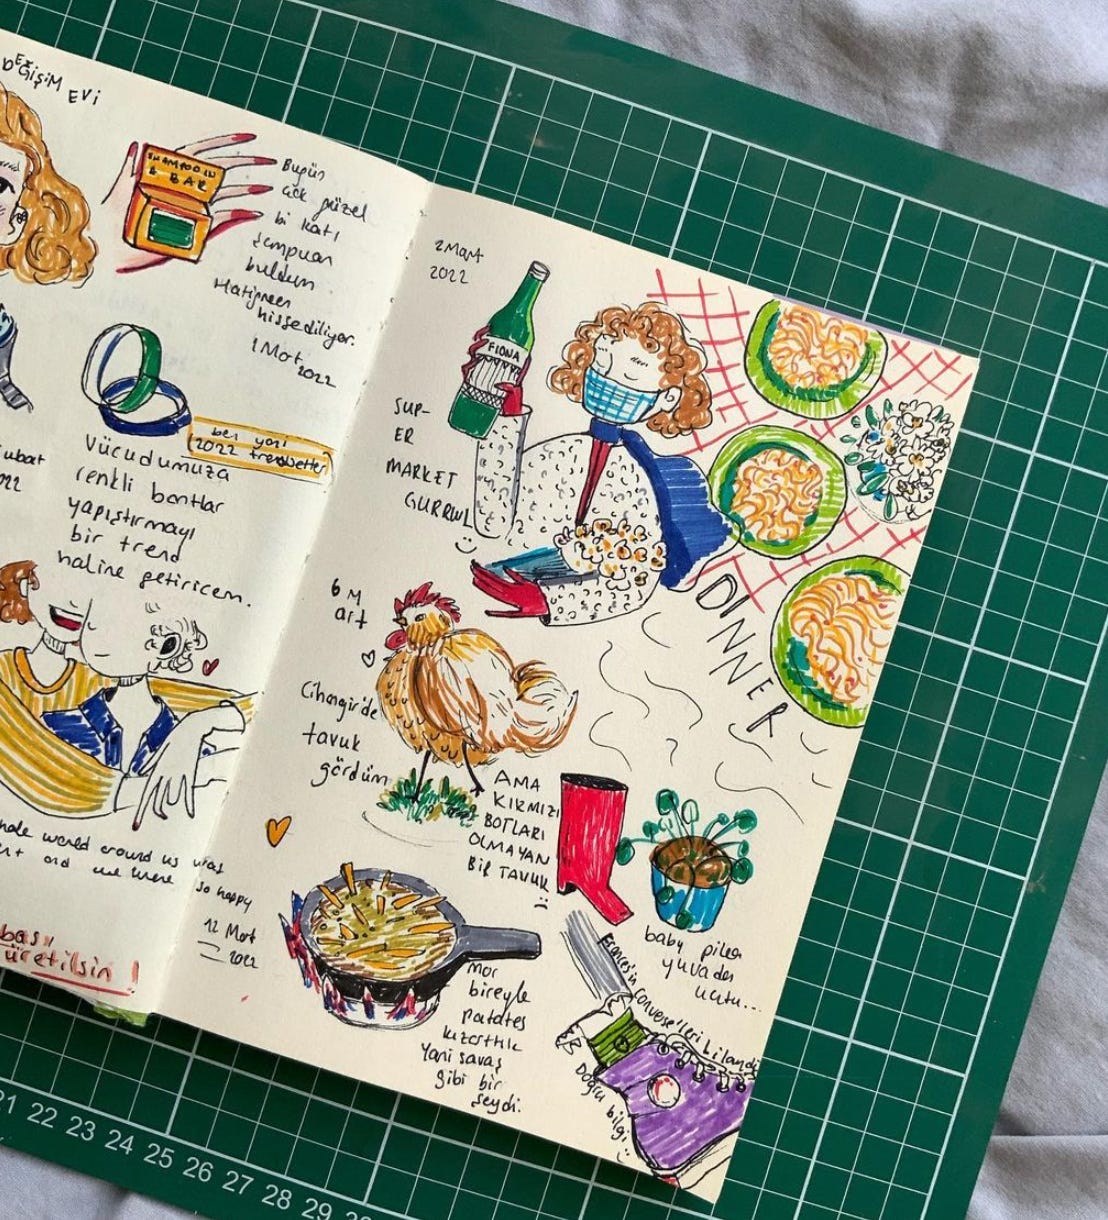 DEĞİŞİM EVİ
SHAMPOOIN
& BAR
Bugün
çok güzel
bi katı
şampuan
buldum.
hissediliyor.
1 Mart
2022
ben yani
2022 trendsetter
Vücudumuza
renkli bantlar
yapıştırmayı
bir trend
haline getiricem.
ubat
022
hole world around us was
and we were so happy
bası
üretilsin !
2 Mart
2022
FIONA
SUP-
ER
MARKET
GURRWL
DINNER
6 M
art
Cihangir'de
tavuk
gördüm
AMA
KIRMIZI
BOTLARI
OLMAYAN
BİR TAVUK
baby pilea
yuvadan
uçtu...
12 Mart
2022
Mor
bireyle
patates
kızarttık
Yani savaş
gibi bir
şeydi.
Frances'in Converse'leri Lilandı
Doğru bilgi
21 22 23 24 25 26 27 28 29 30